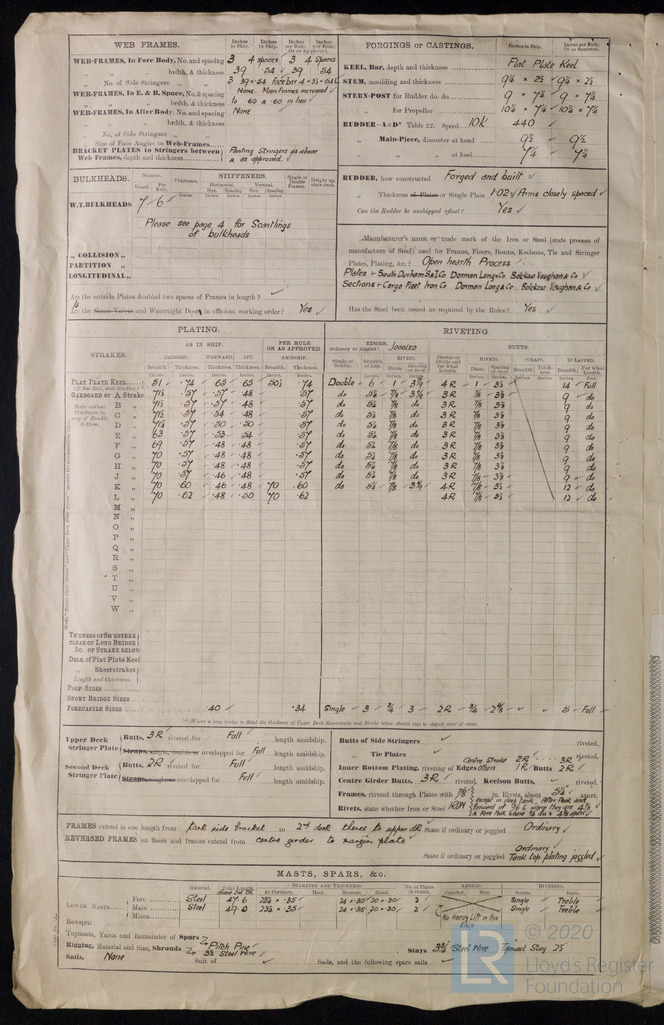 WEB FRAMES.
Inches in Ship. Inches in Ship. Inches per Rule. Or as Approved. Inches per Rule. Or as Approved.
WEB-FRAMES, In Fore Body, No. and spacing 3 4 spaces 3 4 Spaces
„ „ brdth. & thickness 39 .54 39 .54
„ No. of Side Stringers „ 3 39 × .54 Face bar
WEB-FRAMES, In E. & B. Space, No. & spacing None. Main frames increased
„ „ brdth. & thickness to .60 & .60 in lieu
WEB-FRAMES, In After Body, No. and spacing None
„ „ brdth. & thickness
„ No. of Side Stringers „
Size of Face Angles to Web-Frames
BRACKET PLATES to Stringers between Web Frames, depth and thickness Panting Stringers as above & as approved.
BULKHEADS.
Number. Vessel. Per Rule. Thickness. STIFFENERS. Horizontal. Vertical. Size. Spacing Size. Spacing Single or Double Frames. Height up, state deck.
W.T. BULKHEADS 7 - 6
Please see page 4 for Scantlings
of bulkheads
„ COLLISION „
PARTITION „
LONGITUDINAL „
Are the outside Plates doubled two spaces of Frames in length?
Are the Sluice Valves and Watertight Doors in efficient working order? Yes
FORGINGS or CASTINGS.
Inches in Ship. Inches per Rule. Or as Approved.
KEEL, Bar, depth and thickness Flat Plate Keel
STEM, moulding and thickness 9¼ × 2½ 9¼ × 2½
STERN-POST for Rudder do. do. 9 × 7¼ 9 × 7¼
„ for Propeller 10¼ × 7¼ 10¼ × 7¼
RUDDER—A×D² Table 22. Speed 10K 440
„ Main-Piece, diameter at head 9½ - 9½
„ „ at heel 7¼ - 7¼
RUDDER, how constructed Forged and built
„ Thickness of Plates or Single Plate 1.02 Arms closely spaced
Can the Rudder be unshipped afloat? Yes
Manufacturer's name or trade mark of the Iron or Steel (state process of
manufacture of Steel) used for Frames, Floors, Beams, Keelsons, Tie and Stringer
Plates, Plating, &c.? Open hearth Process
Plates :- South Durham S&I Co Dorman Long & Co Bolckow Vaughan & Co
Sections :- Cargo Fleet Iron Co Dorman Long & Co. Bolckow Vaughan & Co
Has the Steel been tested as required by the Rules? Yes
PLATING.
RIVETING.
STRAKES.
AS IN SHIP. PER RULE OR AS APPROVED.
AMIDSHIP. FORWARD. AFT. AMIDSHIP.
Breadth. Thickness. Thickness. Thickness. Breadth. Thickness.
EDGES. Ordinary or joggled? Joggled
BUTTS.
RIVETS. STRAPS. IF LAPPED.
FLAT PLATE KEEL 51 .74 .65 .65 50½ .74 Double 6 1 3½ 4R 1 3½ 14 Full
GARBOARD or A Strake 71½ .57 .57 .48 .57 do 5¼ ⅞ 3R ⅞ 9 do
State actual thickness in way of Double Bottom.
B „ 71½ .57 .57 .48 .57 do 5¼ ⅞ do 3R ⅞ 9 do
C „ 71½ .57 .54 .48 .57 do 5¼ ⅞ do 3R ⅞ 9 do
D „ 71½ .57 .50 .50 .57 do 5¼ ⅞ do 3R ⅞ 9 do
E „ 63 .57 .53 .54 .57 do 5¼ ⅞ do 3R ⅞ 9 do
F „ 69 .57 .48 .48 .57 do 5¼ ⅞ do 3R ⅞ 9 do
G „ 70 .57 .48 .48 .57 do 5¼ ⅞ do 3R ⅞ 9 do
H „ 70 .57 .48 .48 .57 do 5¼ ⅞ do 3R ⅞ 9 do
J „ 70 .57 .46 .48 .57 do 5¼ ⅞ do 3R ⅞ 9 do
K „ 70 .60 .46 .48 70 .60 do 5¼ ⅞ 4R ⅞ 12 do
L „ 70 .62 .48 .50 70 .62 4R ⅞ 12 do
M „
N „
O „
P „
Q „
R „
S „
T „
U „
V „
W „
THCKNESS OF SH'RSTRKE
CLEAR OF LONG BRIDGE
DO. OF STRAKE BELOW
DBLG. of Flat Plate Keel
„ Sheerstrakes
Length and thickness.
POOP SIDES
SHORT BRIDGE SIDES
FORECASTLE SIDES .40 .34 Single 3 ¾ 3 2R ¾ 5 Full
Upper Deck Stringer Plate
Butts, 3R riveted for Full length amidship.
Straps, single, double or overlapped for Full length amidship.
Second Deck Stringer Plate
Butts, 2R riveted for Full length amidship.
Straps overlapped for Full length amidship.
Butts of Side Stringers riveted.
„ Tie Plates riveted.
Inner Bottom Plating, riveting of Edges Centre Strake 2R Others 1R Butts 3R 2R
Centre Girder Butts, 3R riveted, Keelson Butts, riveted.
Frames, riveted through Plates with ⅞ in. Rivets, about 5¼ apart.
Rivets, state whether Iron or Steel IRON
except in deep tank, After Peak and
FRAMES extend in one length from tank side bracket to 2nd deck thence to upper dk State if ordinary or joggled Ordinary
REVERSED FRAMES on floors and frames extend from centre girder to margin plate
State if ordinary or joggled Ordinary Tank top plating joggled
MASTS, SPARS, &c.
Material. Total length above 2nd Dk DIAMETER AND THICKNESS. At Partners. Heel. Hounds. Head. No. of Plates in round. ANGLES. Number. Size. RIVETING. Seams. Butts.
LOWER MASTS
Fore Steel 47.6 23½ × .35 24 × .35 20 × .30 2 Single Treble
Main Steel 49.0 23½ × .35 24 × .35 20 × .30 2 Single Treble
Mizen
No Heavy Lift in this Ship
Bowsprit
Topmasts, Yards and Remainder of Spars Pitch Pine
Rigging, Material and Size, Shrouds 3½ Steel Wire Stays 3¾ Steel Wire Topmast Stay 2½
Sails. None Suit of Sails, and the following spare sails
© 2020
LR
Lloyd's Register
Foundation